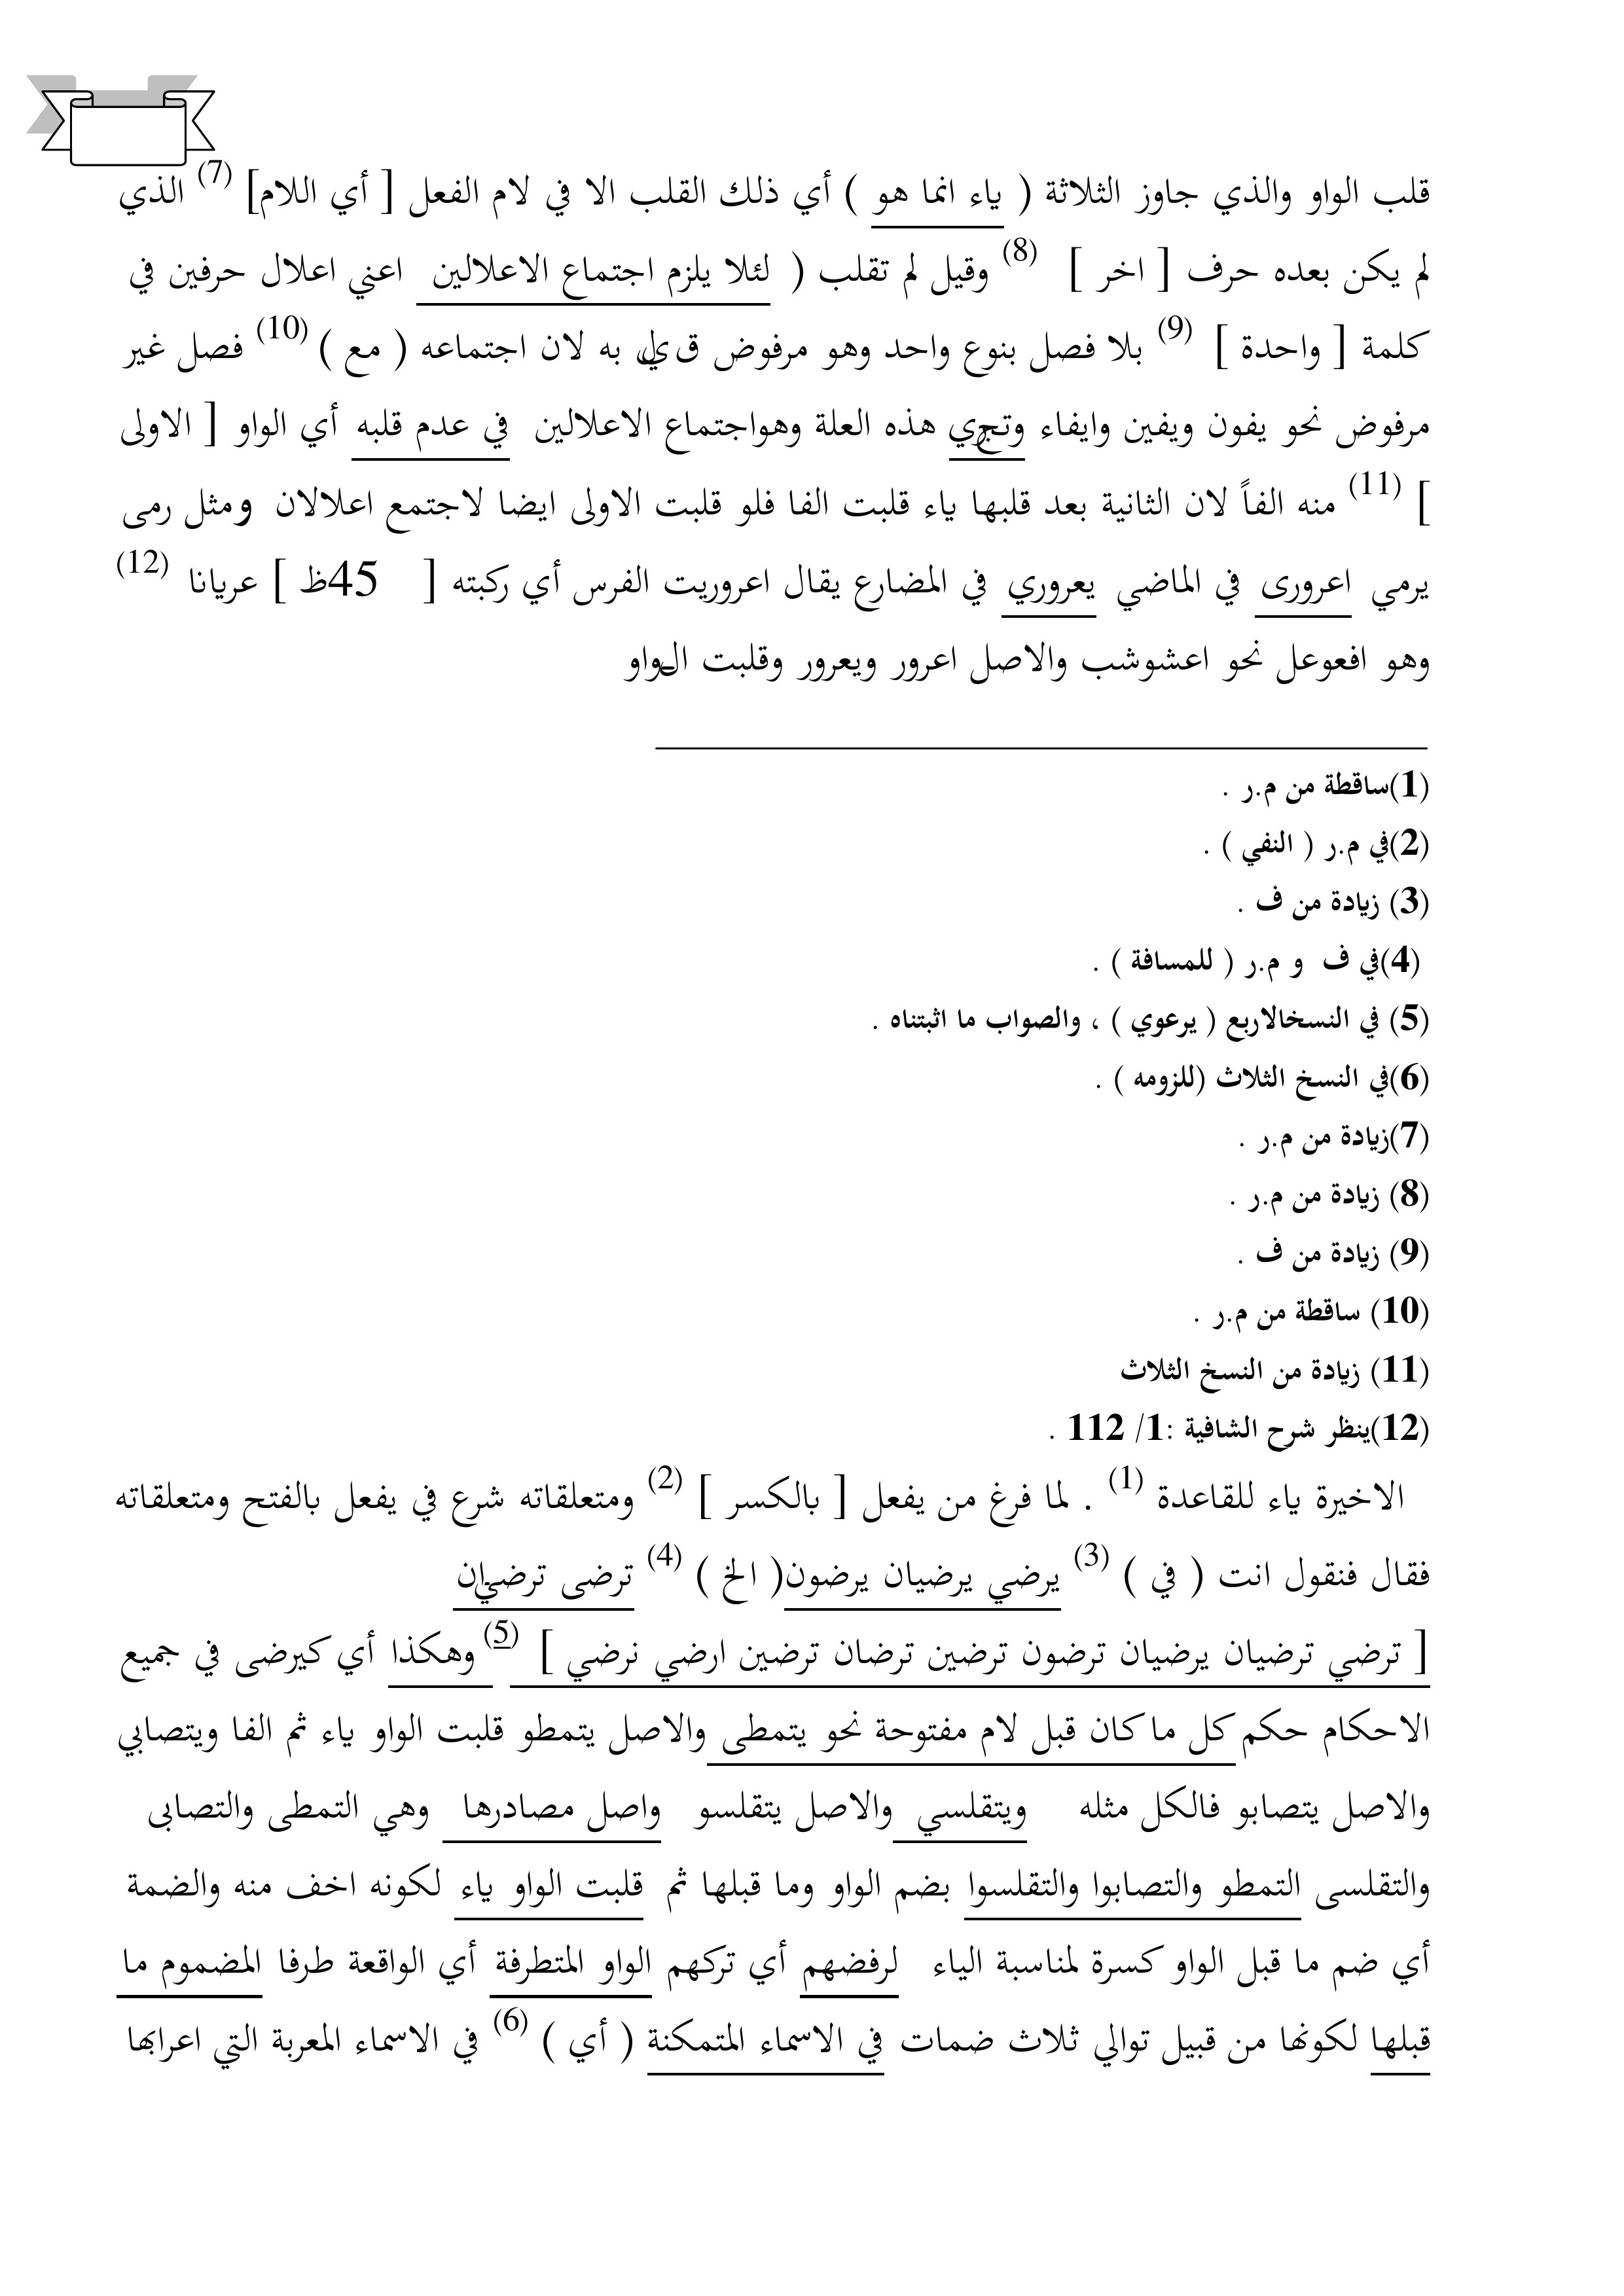 قلب الواو والذي جاوز الثلاثة ( ياء انما هو ) أي ذلك القلب الا في لام الفعل [ أي اللام] (7) الذي
لم يكن بعده حرف [ اخر ] (8) وقيل لم تقلب ( لئلا يلزم اجتماع الاعلالين اعني اعلال حرفين في
كلمة [ واحدة ] (9) بلا فصل بنوع واحد وهو مرفوض قيل به لان اجتماعه ( مع ) (10) فصل غير
مرفوض نحو يفون ويفين وايفاء وتجري هذه العلة وهواجتماع الاعلالين في عدم قلبه أي الواو [ الاولى
] (11) منه الفاً لان الثانية بعد قلبها ياء قلبت الفا فلو قلبت الاولى ايضا لاجتمع اعلالان ومثل رمى
يرمي اعرورى في الماضي يعروري في المضارع يقال اعروريت الفرس أي ركبته [ 45ظ ] عريانا (12)
وهو افعوعل نحو اعشوشب والاصل اعرور ويعرور وقلبت الواو
(1)ساقطة من م.ر .
(2)في م.ر ( النفي ) .
(3) زيادة من ف .
(4)في ف و م.ر ( للمسافة ) .
(5) في النسخالاربع ( يرعوي ) ، والصواب ما اثبتناه .
(6)في النسخ الثلاث (للزومه ) .
(7)زيادة من م.ر .
(8) زيادة من م.ر .
(9) زيادة من ف .
(10) ساقطة من م.ر .
(11) زيادة من النسخ الثلاث
(12)ينظر شرح الشافية :1/ 112 .
الاخيرة ياء للقاعدة (1) . لما فرغ من يفعل [ بالكسر ] (2) ومتعلقاته شرع في يفعل بالفتح ومتعلقاته
فقال فنقول انت ( في ) (3) يرضي يرضيان يرضون( الخ ) (4) ترضى ترضيان
[ ترضي ترضيان يرضيان ترضون ترضين ترضان ترضين ارضي نرضي ] (5) وهكذا أي كيرضى في جميع
الاحكام حكم كل ما كان قبل لام مفتوحة نحو يتمطى والاصل يتمطو قلبت الواو ياء ثم الفا ويتصابي
والاصل يتصابو فالكل مثله ويتقلسي والاصل يتقلسو واصل مصادرها وهي التمطى والتصابى
والتقلسى التمطو والتصابوا والتقلسوا بضم الواو وما قبلها ثم قلبت الواو ياء لكونه اخف منه والضمة
أي ضم ما قبل الواو كسرة لمناسبة الياء لرفضهم أي تركهم الواو المتطرفة أي الواقعة طرفا المضموم ما
قبلها لكونها من قبيل توالي ثلاث ضمات في الاسماء المتمكنة ( أي ) (6) في الاسماء المعربة التي اعرابها